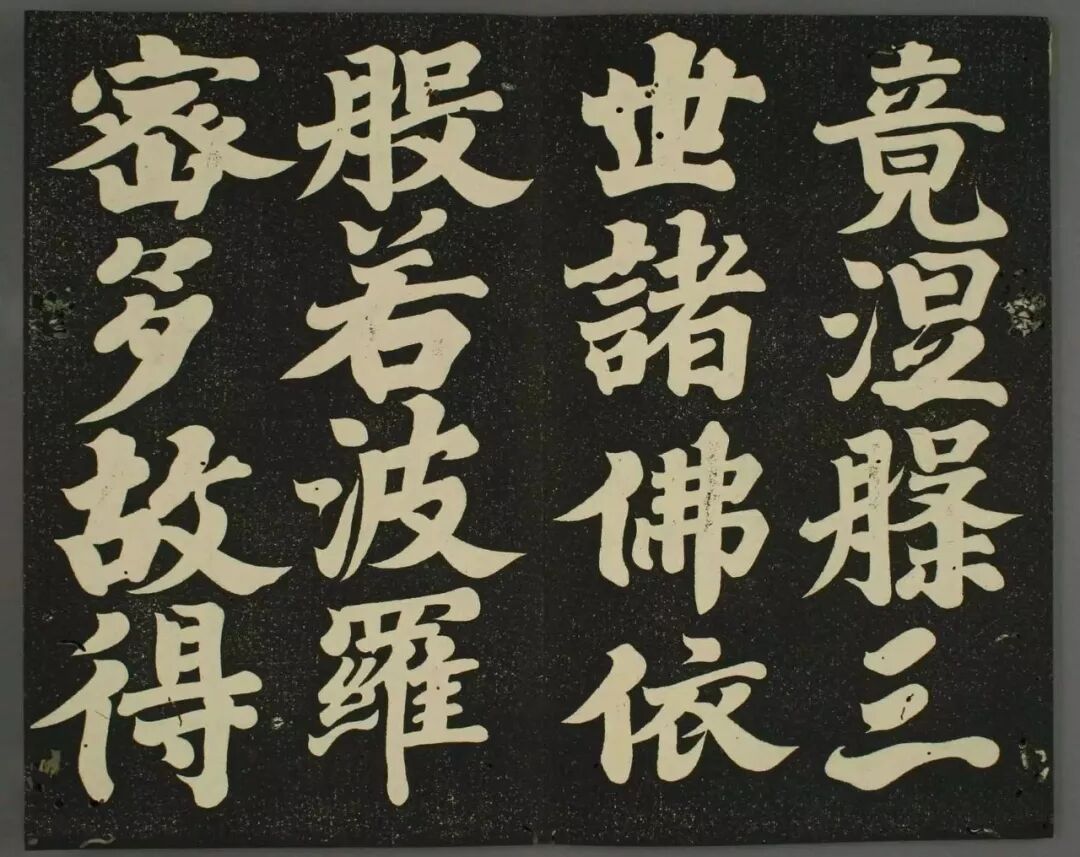 竟涅槃三
世諸佛依
般若波羅
密多故得